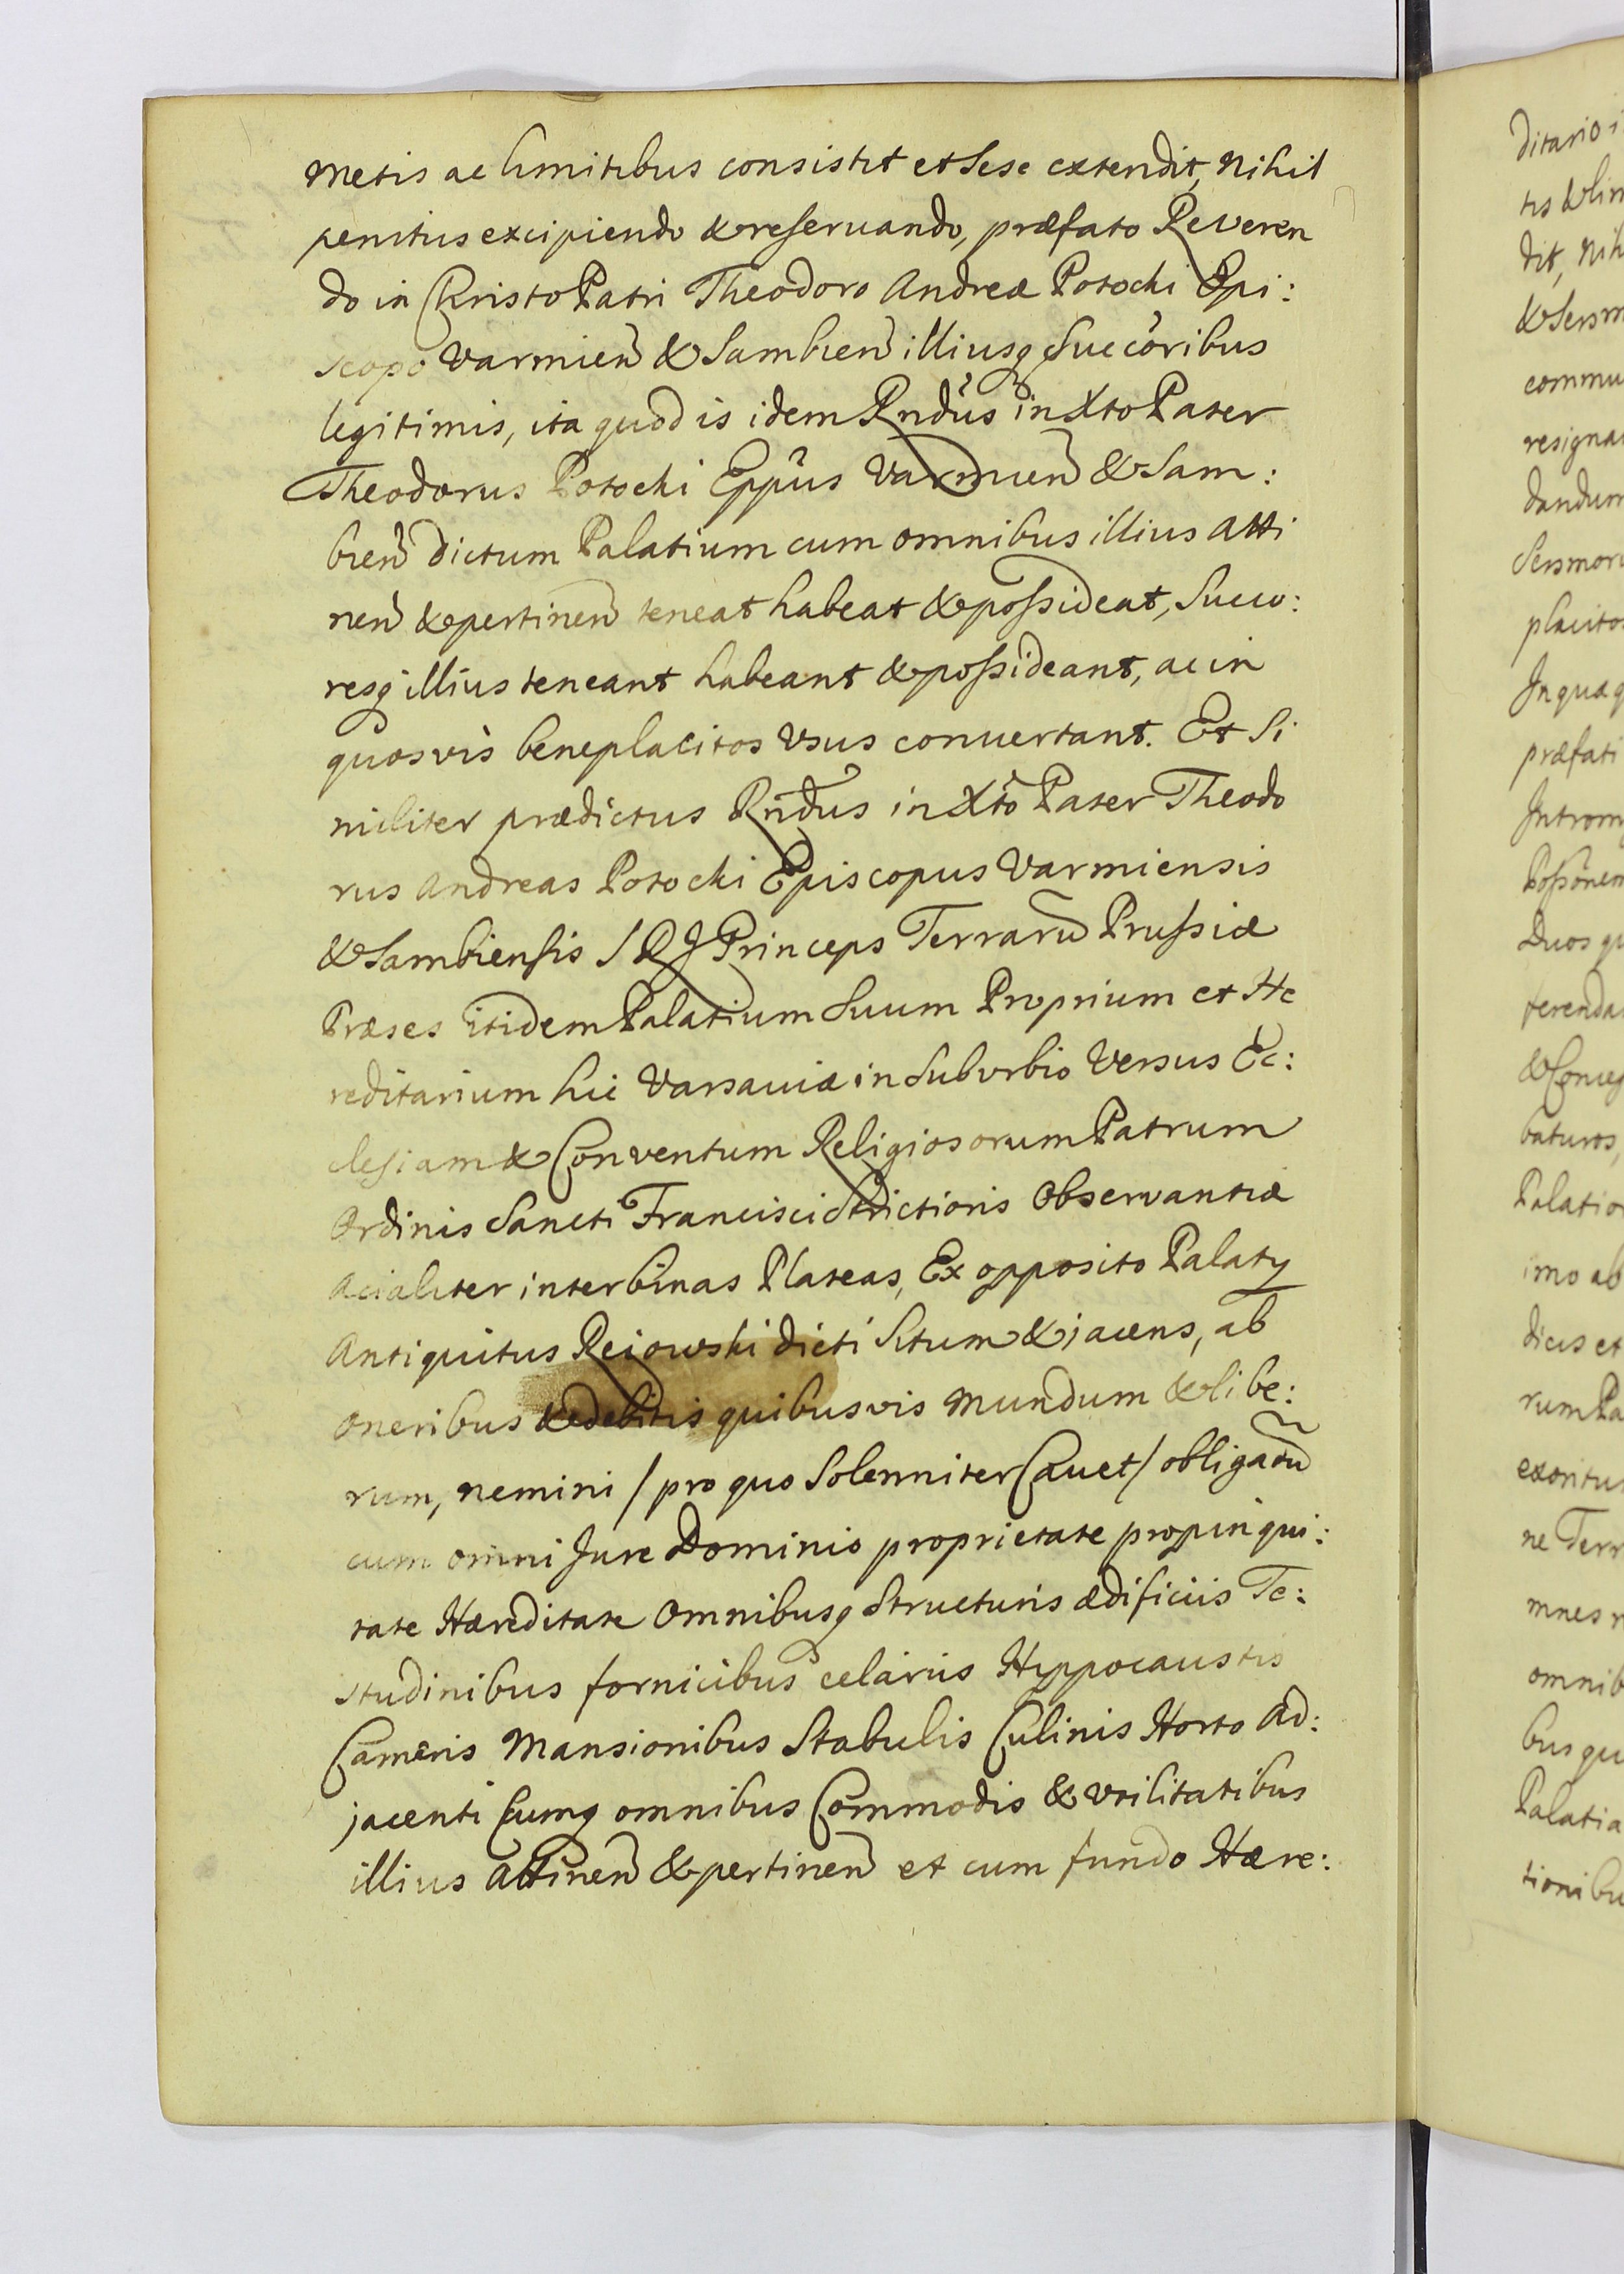 metis ac limitibus consistit et sese extendit, nihil
penitus excipiendo & reservando, præfato Reveren
do in Christo Patri Theodoro Andreæ Potocki Epi:
scopo Varmien̄ & Sambien̄ illiusq̃ Succōribus
legitimis, ita quod is idem Rndūs in Xto Pater
Theodorus Potocki Eppūs Varmien̄ & Sam:
bien̄ dictum Palatium cum omnibus illius atti
nen̄ & pertinen̄ teneat habeat & possideat, Succo:
resq̃ illius teneant habeant & possideant, ac in
quosvis beneplacitos usus convertant. Et Si
militer prædictus Rndūs in Xtō Pater Theodo
rus Andreas Potocki Episcopus Varmiensis
& Sambiensis S R J Princeps Terrarū Prussiæ
Præses itidem Palatium Suum Proprium et He
reditarium hic Varsaviæ in Suburbio versus Ec:
clesiam & Conventum Religiosorum Patrum
Ordinis Sancti Francisci Strictioris Observantiæ
Acialiter inter binas Plateas, Ex opposito Palaty
Antiquitus Reiowski dicti Situm & jacens, ab
oneribus & debitis quibusvis mundum & libe:
rum, nemini / pro quo Solenniter Cavet / obligatū
cum omni Jure Dominio proprietate propinqui:
tate Hæreditate Omnibusq̃ Structuris ædificiis Te:
studinibus fornicibus celariis Hyppocaustis
Cameris Mansionibus Stabulis Culinis Horto ad:
jacenti Cumq̃ omnibus Commodis & utilitatibus
illius attinen̄ & pertinen̄ et cum fundo Hære:
ditario i
tis & lim
dit, nih
& Sersm
commu
resigna
dandum
Sersmor
placito
In quæ q
præfati
Introm
Possōnem
Duos qu
ferenda
baturos,
Palatio
imo ab
dicis et
rum Pa
exoritur
ne Terr
mnes r
omnib
bus qu
Palatia
tionibu